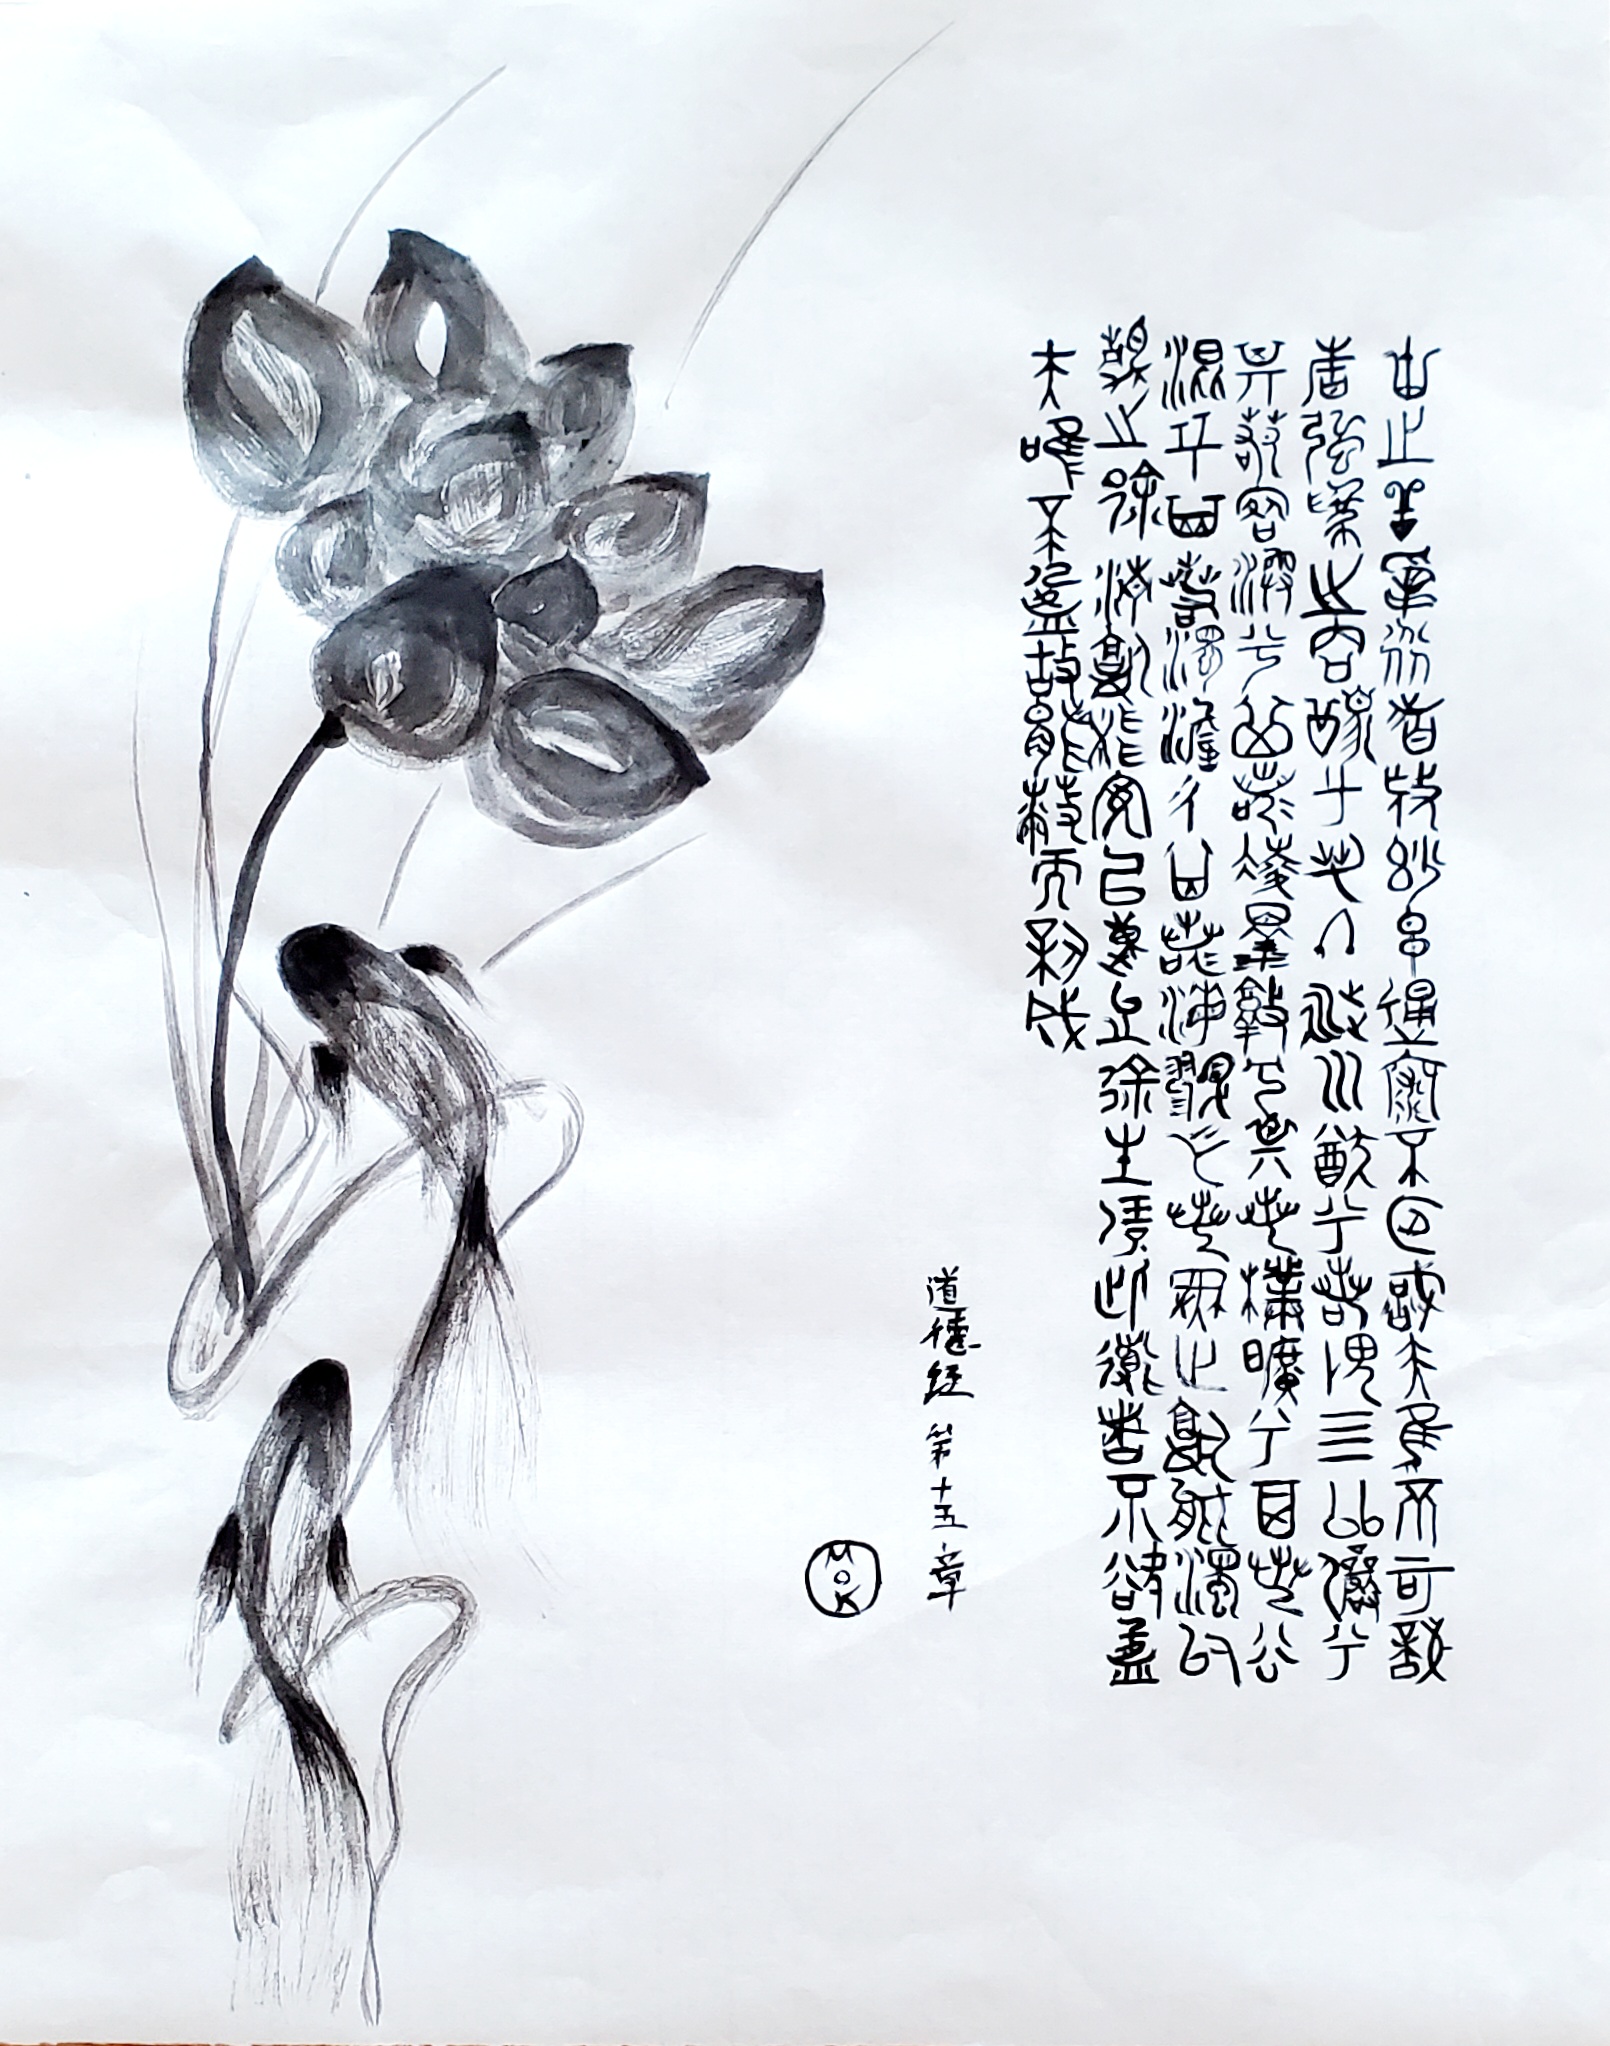 古之善為士者微妙玄通深不可識夫唯不可識
故強為之容豫兮若冬涉川猶兮若畏四鄰儼兮
其若容渙兮其若凌釋敦兮其若樸曠兮其若谷
混兮其若濁澹兮其若海飂兮若無止孰能濁以
靜之徐清孰能安以動之徐生保此道者不欲盈
夫唯不盈故能蔽而新成
道德经 第十五章
MOK